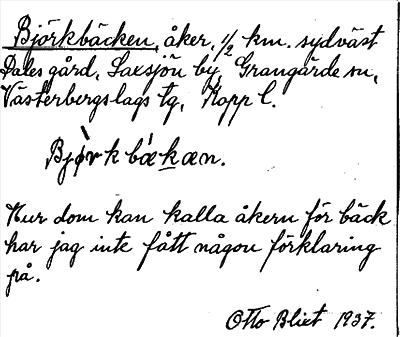 Björkbäcken, åker, 1/2 km. sydväst
Dales gård, Saxsjön by, Grangärde sn,
Västerbergslags tg, Kopp l.
Bjørkbækæn.
Hur dom kan kalla åkern för bäck
har jag inte fått någon förklaring
på.
Otto Blixt 1937.